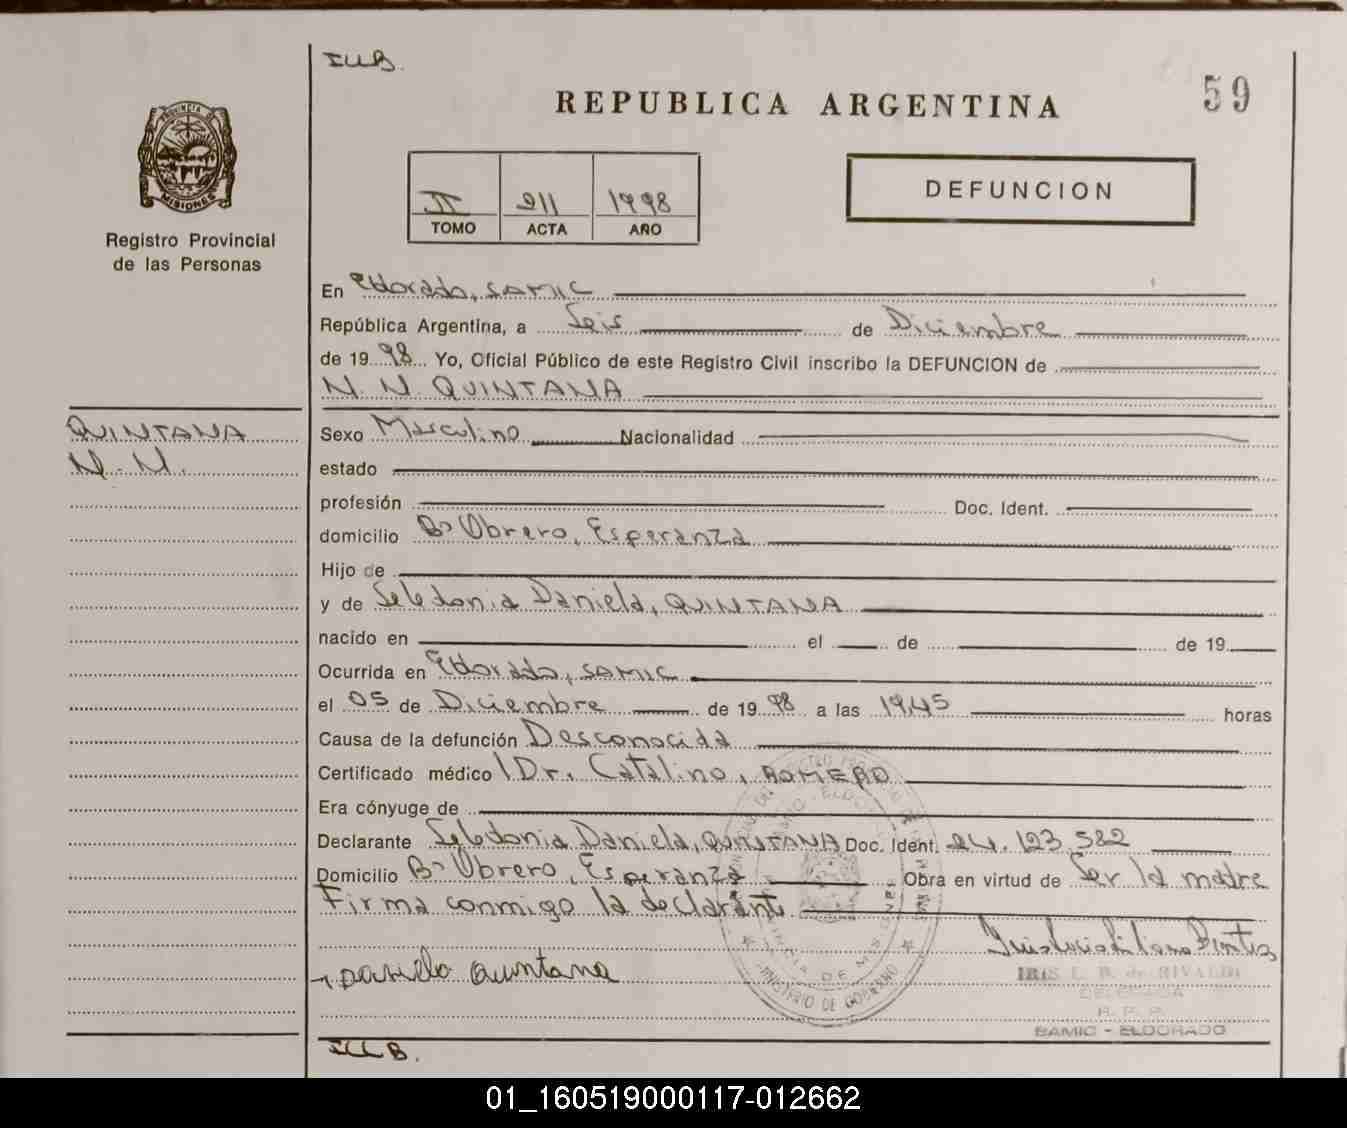 ILLB.
REPUBLICA ARGENTINA
59
PROVINCIA DE
MISIONES
Registro Provincial
de las Personas
II 211 1998
TOMO ACTA AÑO
DEFUNCION
En Eldorado, SAMIC
República Argentina, a Seis de Diciembre
de 1998 Yo, Oficial Público de este Registro Civil inscribo la DEFUNCION de
N. N. QUINTANA
QUINTANA
N. N.
Sexo Masculino Nacionalidad
estado
profesión Doc. Ident.
domicilio B° Obrero, Esperanza
Hijo de
y de Seledonia Daniela, QUINTANA
nacido en el de de 19
Ocurrida en Eldorado, SAMIC
el 05 de Diciembre de 1998 a las 19,45 horas
Causa de la defunción Desconocida
Certificado médico Dr. Catalino, ROMERO
Era cónyuge de
Declarante Seledonia Daniela, QUINTANA Doc. Ident. 24.123.582
Domicilio B° Obrero, Esperanza Obra en virtud de Ser la madre
Firma conmigo la declarante
quintana
IRIS L. B. de RIVALDI
DELEGADA
R. P. P.
SAMIC - ELDORADO
MINISTERIO DE GOBIERNO
ILLB.
01_160519000117-012662